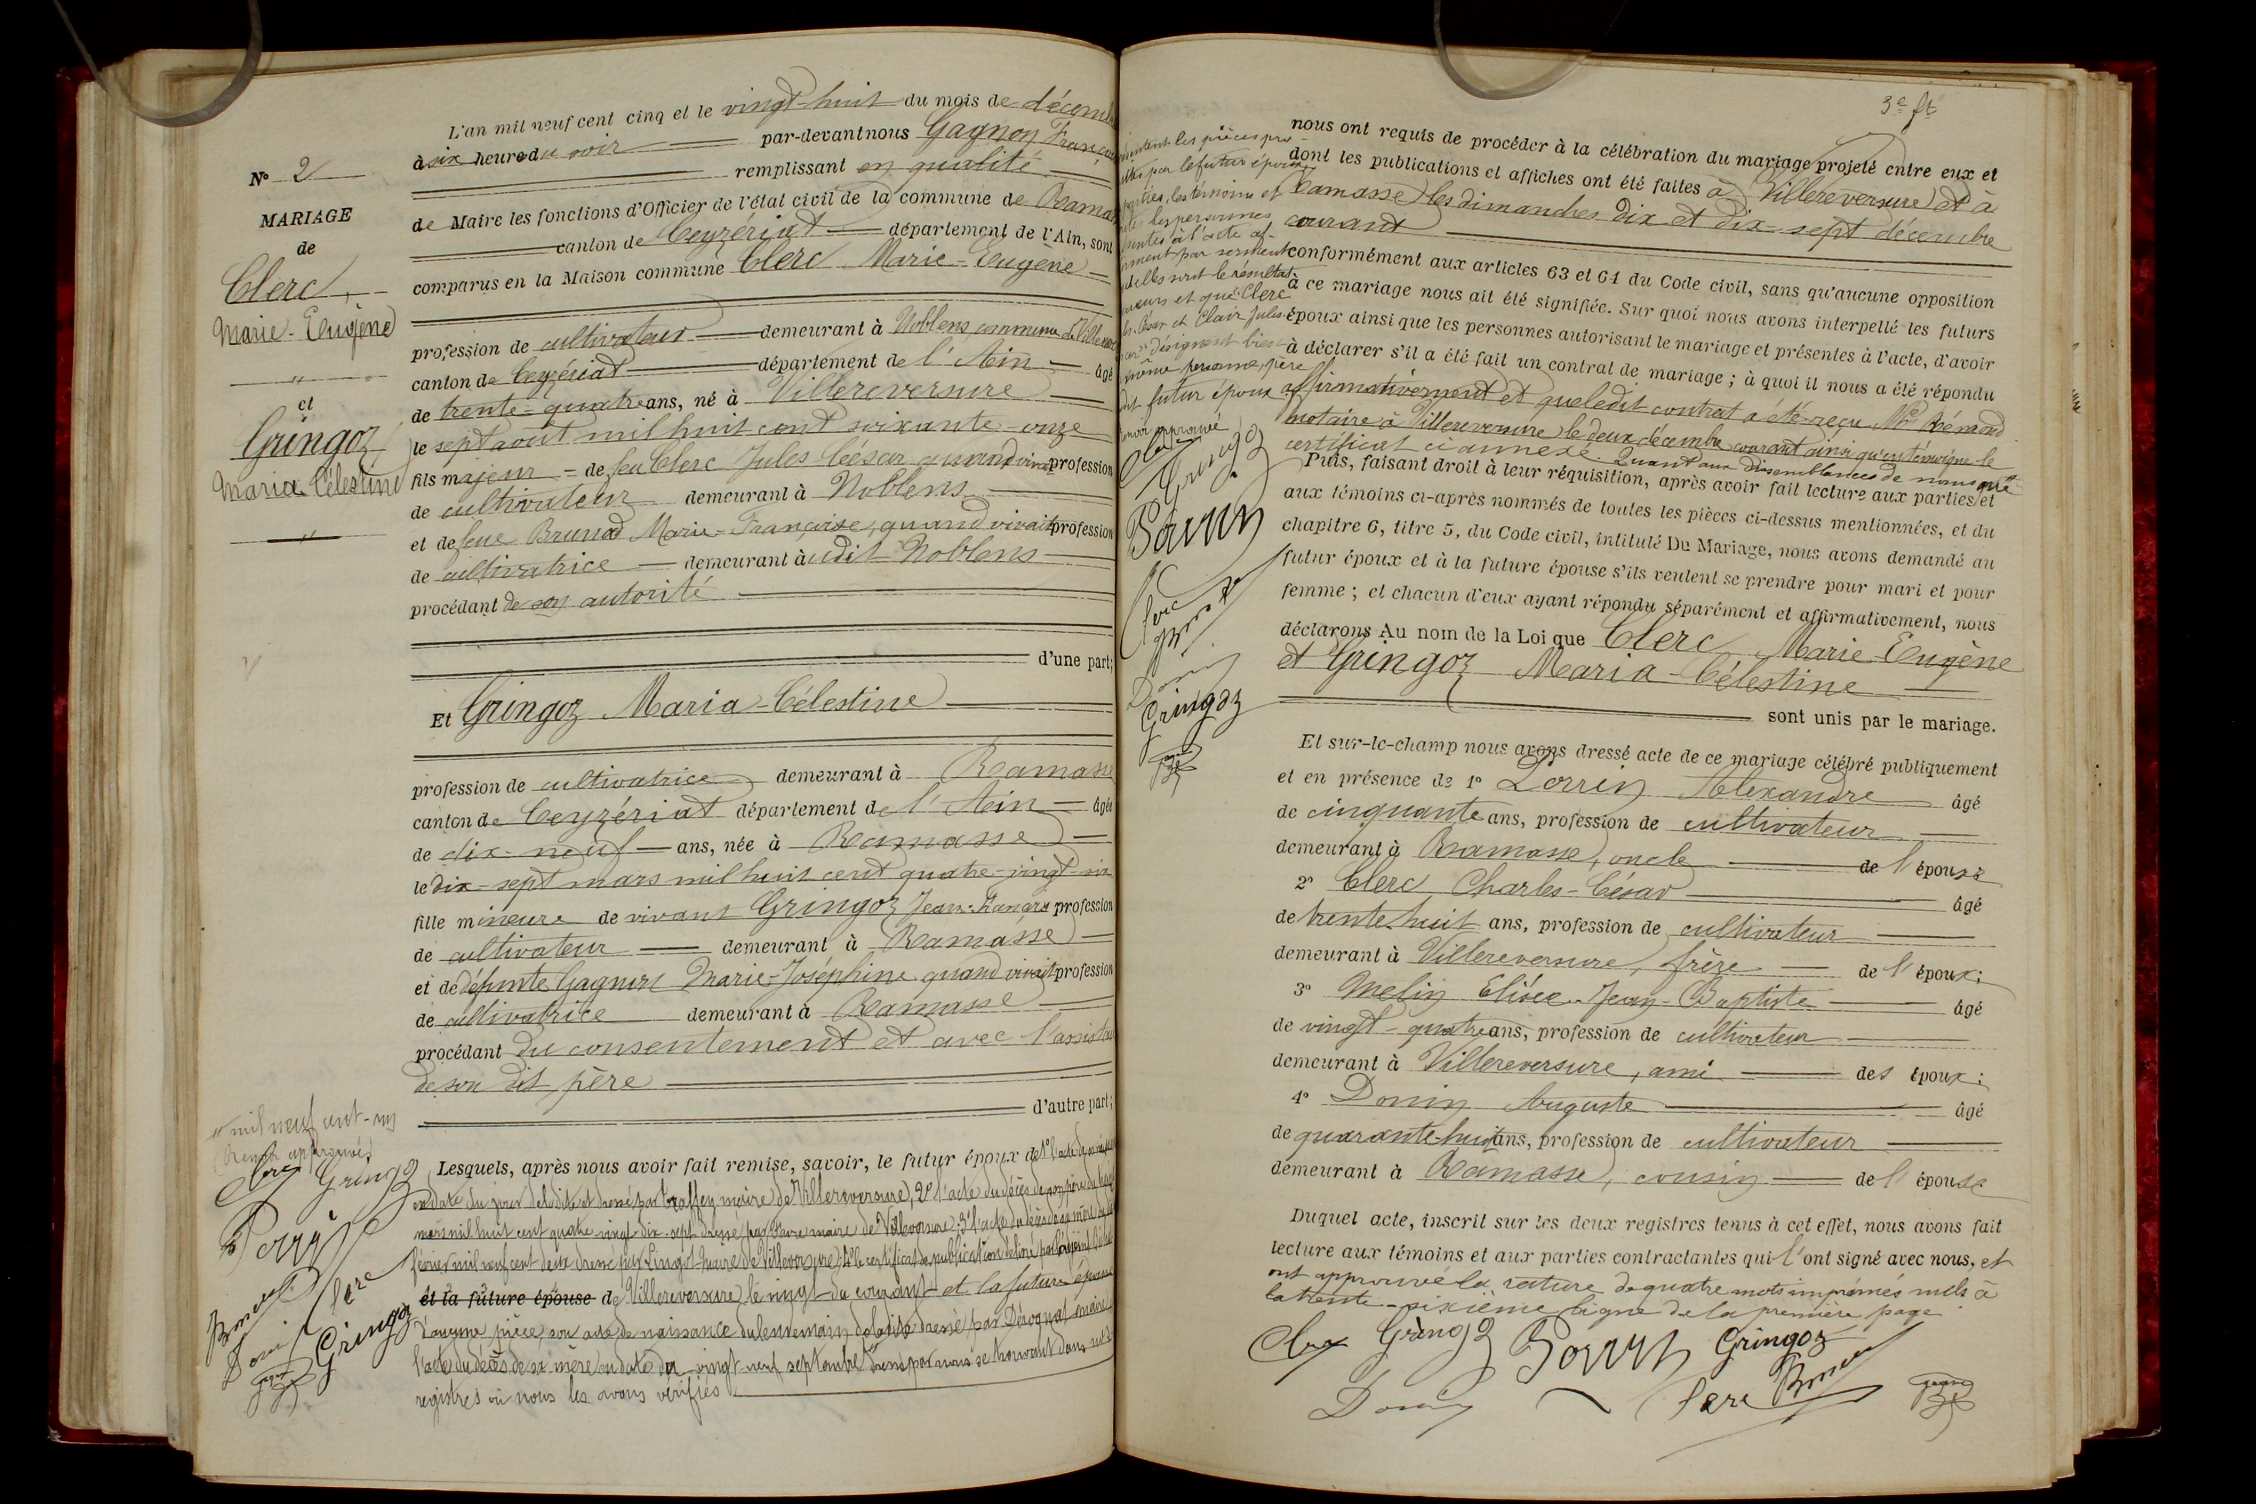 N° 2
MARIAGE
de
Clerc,
Marie-Eugène
"
et
Gringoz
Maria Célestine
"
L'an mil neuf cent cinq et le vingt-huit du mois de décemb
à six heure du soir par-devant nous Gagnon François
remplissant en qualité
de Maire les fonctions d'Officier de l'état civil de la commune de Rama
canton de Ceyzériat département de l'Ain, sont
comparus en la Maison commune Clerc Marie-Eugène
profession de cultivateur demeurant à Noblens, commune de
canton de Ceyzériat département de l'Ain âgé
de trente-quatre ans, né à Villereversure
le sept août mil huit cent soixante-onze
fils majeur de feu Clerc Jules César quand vivait profession
de cultivateur demeurant à Noblens
et de feue Brunod Marie-Françoise, quand vivait profession
de cultivatrice demeurant à udit Noblens
procédant de son autorité
d'une part;
Et Gringoz Maria-Célestine
profession de cultivatrice demeurant à Ramasse
canton de Ceyzériat département de l'Ain âgée
de dix-neuf ans, née à Ramasse
le dix-sept mars mil huit cent quatre-vingt-six
fille mineure de vivant Gringoz Jean-François profession
de cultivateur demeurant à Ramasse
et de défunte Gagnon Marie-Joséphine quand vivait profession
de cultivatrice demeurant à Ramasse
procédant du consentement et avec l'assista
de son dit père
d'autre part;
" mil neuf cent-un
Renvoi approuvé
Clerc Gringoz
Clerc
Gringoz
Lesquels, après nous avoir fait remise, savoir, le futur époux de 1° l'acte de
en date du jour de dressé par maire de Villereversure, 2° l'acte du décès de son père
mars mil huit cent quatre-vingt-dix-sept dressé par maire de Villereversure, 3° l'acte du décès de sa mère
février mil neuf cent deux dressé par maire de Villereversure, 4° le certificat de publication délivré par
et la future épouse de Villereversure le vingt du courant et la future épouse
d'aucune pièce, son acte de naissance du lendemain de dressé par maire
l'acte du décès de sa mère en date du vingt-neuf septembre " dressé par nous se trouvant dans nos
registres où nous les avons vérifiés
3e ft
les pièces pro
par le futur époux
parties, les témoins et
les personnes
à l'acte af-
par serment
et que Clerc
César et Clair Jules
désignent bien
même personne, père
futur époux
approuvé
Clerc
Gringoz
Gringoz
nous ont requis de procéder à la célébration du mariage projeté entre eux et
dont les publications et affiches ont été faites à Villereversure et à
Ramasse les dimanches dix et dix-sept décembre
courant
conformément aux articles 63 et 64 du Code civil, sans qu'aucune opposition
à ce mariage nous ait été signifiée. Sur quoi nous avons interpellé les futurs
époux ainsi que les personnes autorisant le mariage et présentes à l'acte, d'avoir
à déclarer s'il a été fait un contrat de mariage; à quoi il nous a été répondu
affirmativement et que ledit contrat a été reçu Me Rémond
notaire à Villereversure le deux décembre courant ainsi qu'en témoigne le
certificat ci annexé. Quant aux dissemblances de noms que
Puis, faisant droit à leur réquisition, après avoir fait lecture aux parties et
aux témoins ci-après nommés de toutes les pièces ci-dessus mentionnées, et du
chapitre 6, titre 5, du Code civil, intitulé Du Mariage, nous avons demandé au
futur époux et à la future épouse s'ils veulent se prendre pour mari et pour
femme; et chacun d'eux ayant répondu séparément et affirmativement, nous
déclarons Au nom de la Loi que Clerc Marie-Eugène
et Gringoz Maria-Célestine
sont unis par le mariage.
Et sur-le-champ nous avons dressé acte de ce mariage célébré publiquement
et en présence de 1° Alexandre âgé
de cinquante ans, profession de cultivateur
demeurant à Ramasse, oncle de l'épouse
2° Clerc Charles-César âgé
de trente-huit ans, profession de cultivateur
demeurant à Villereversure, frère de l'époux;
3° Melin Elisée-Jean-Baptiste âgé
de vingt-quatre ans, profession de cultivateur
demeurant à Villereversure, ami des époux;
4° Donin Auguste âgé
de quarante-huit ans, profession de cultivateur
demeurant à Ramasse, cousin de l'épouse
Duquel acte, inscrit sur les deux registres tenus à cet effet, nous avons fait
lecture aux témoins et aux parties contractantes qui l'ont signé avec nous, et
ont approuvé la rature de quatre mots imprimés nuls à
la trente-sixième ligne de la première page
Clerc Gringoz Gringoz
Donin Clerc